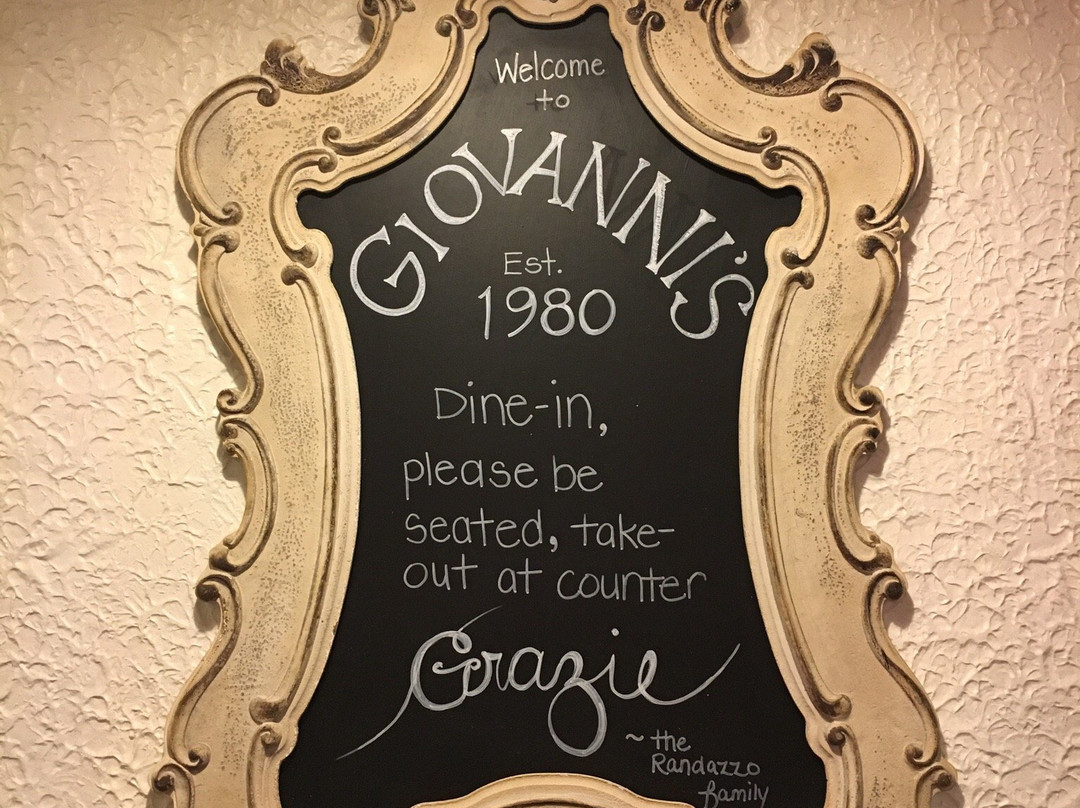 Welcome
to
GIOVANNI'S
Est.
1980
Dine-in,
please be
seated, take-
out at counter
Grazie
~ the
Randazzo
family